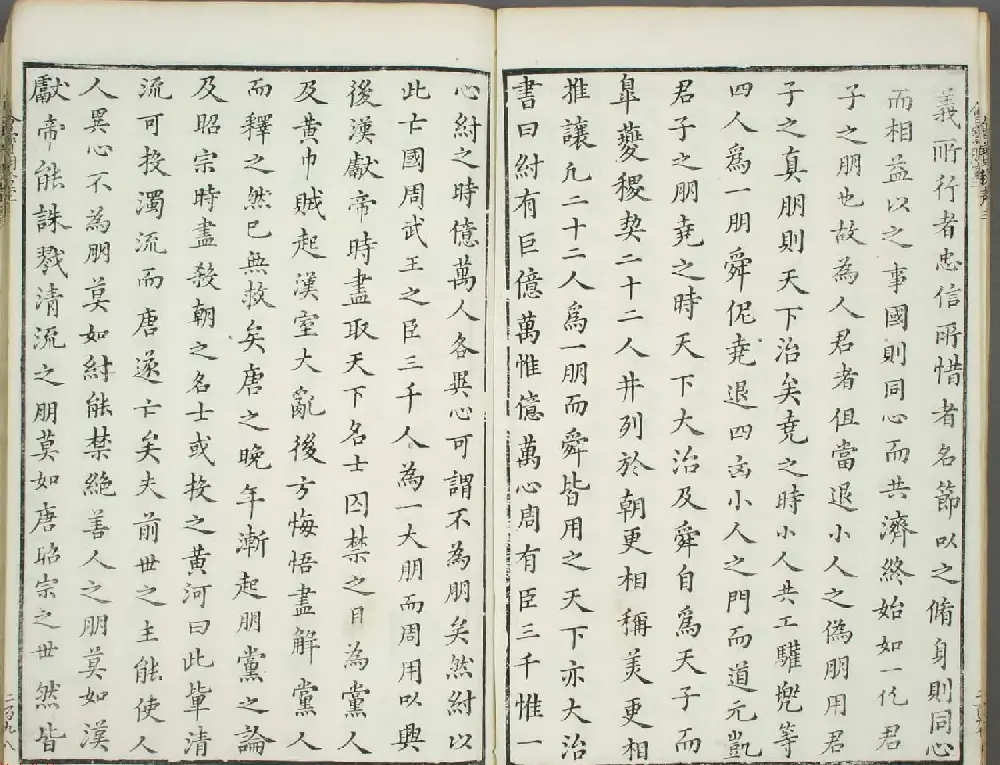 義所行者忠信所惜者名節以之脩身則同心
而相益以之事國則同心而共濟終始如一此君
子之朋也故為人君者但當退小人之偽朋用君
子之真朋則天下治矣堯之時小人共工驩兜等
四人爲一朋舜佐堯退四凶小人之門而道元凱
君子之朋堯之時天下大治及舜自爲天子而
臯夔稷契二十二人并列於朝更相稱美更相
推讓凡二十二人爲一朋而舜皆用之天下亦大治
書曰紂有臣億萬惟億萬心周有臣三千惟一
心紂之時億萬人各異心可謂不為朋矣然紂以
此亡國周武王之臣三千人為一大朋而周用以興
後漢獻帝時盡取天下名士囚禁之目為黨人
及黃巾賊起漢室大亂後方悔悟盡解黨人
而釋之然已無救矣唐之晚年漸起朋黨之論
及昭宗時盡殺朝之名士或投之黃河曰此軰清
流可投濁流而唐遂亡矣夫前世之主能使人
人異心不為朋莫如紂能禁絕善人之朋莫如漢
獻帝能誅戮清流之朋莫如唐昭宗之世然皆